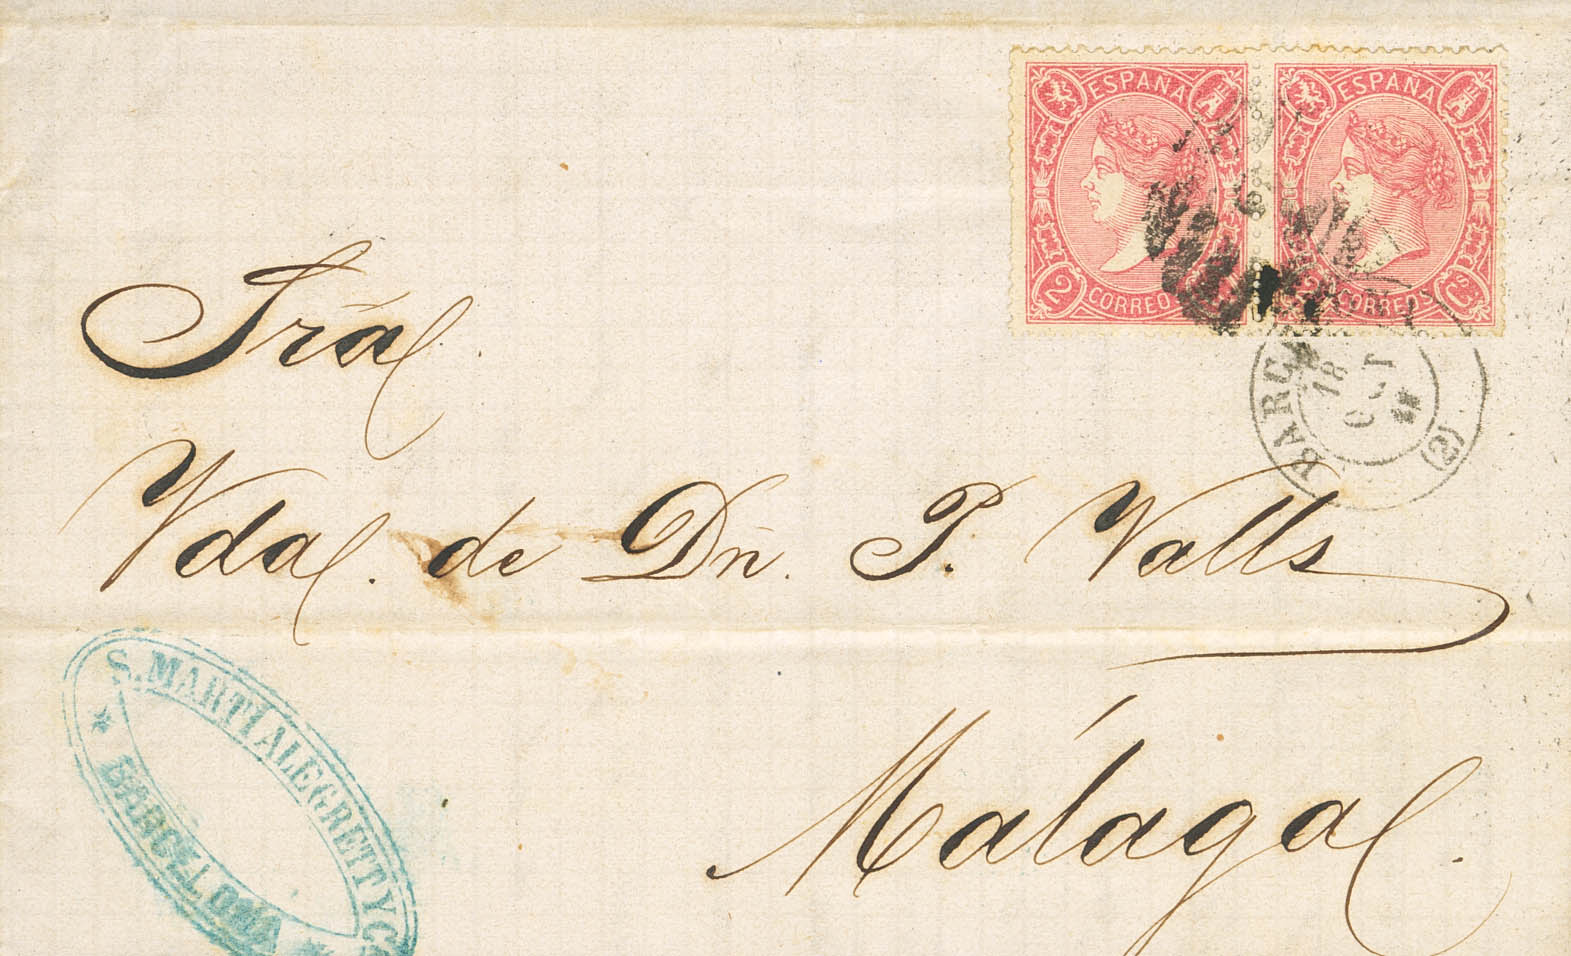 ESPAÑA ESPAÑA
2 CORREOS 2 CORREOS
BARCELONA
18
OCT
(2)
Sra
Vda. de Dn. P. Valls
Málaga.
S. MARTI ALEGRETT Y C
* BARCELONA *